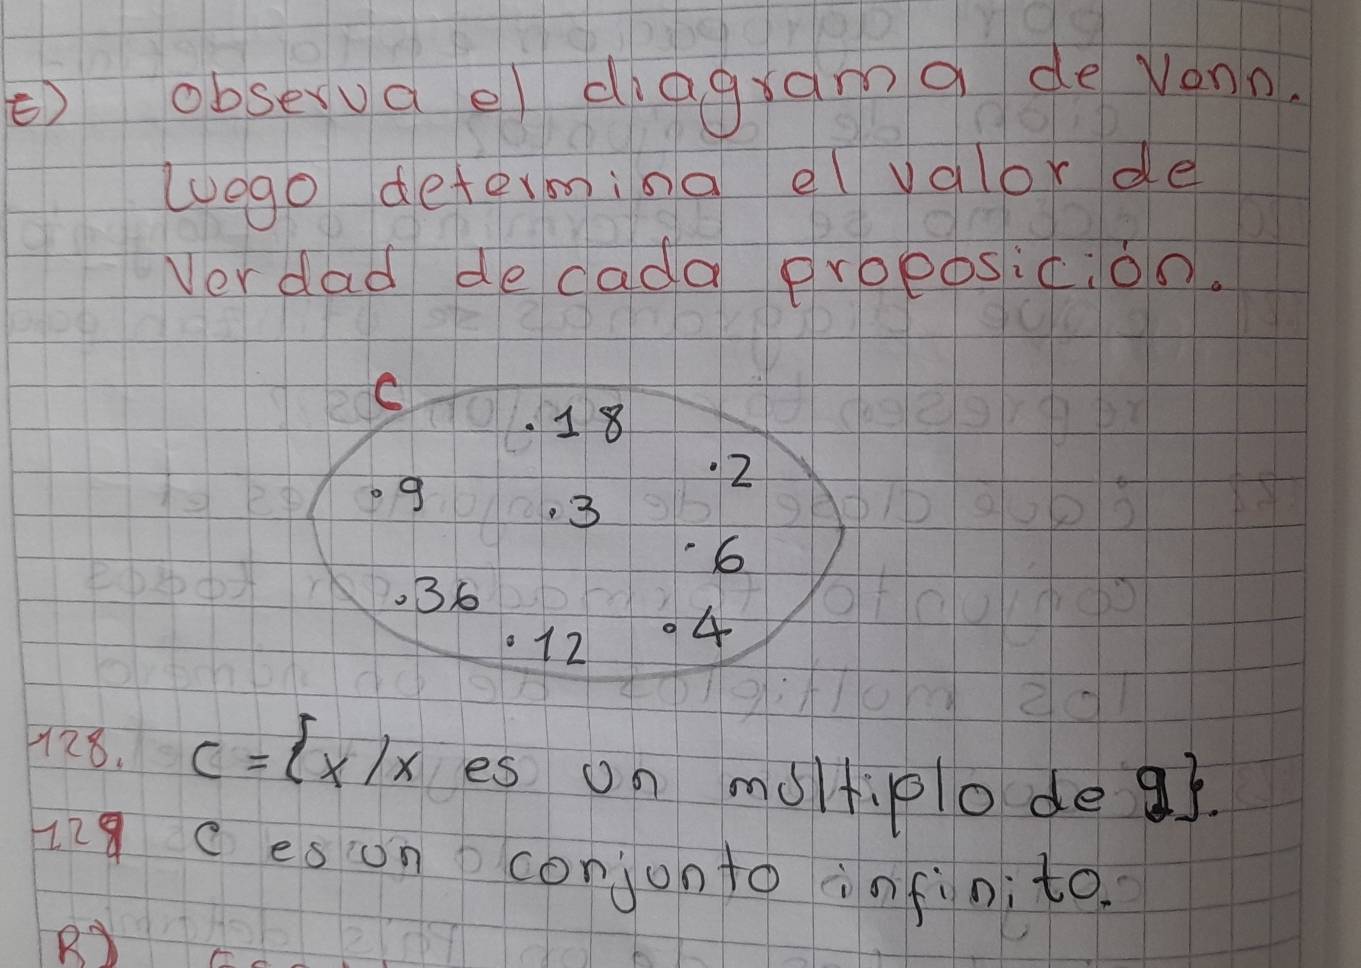 E) observa el diagrama de Venn.
luego determina el valor de
Verdad de cada proposición.
C
.18
.2
.9
.3
.6
.36
.12
.4
128. C = {x/x es un múltiplo de 9}.
129 C es un conjunto infinito.
R)